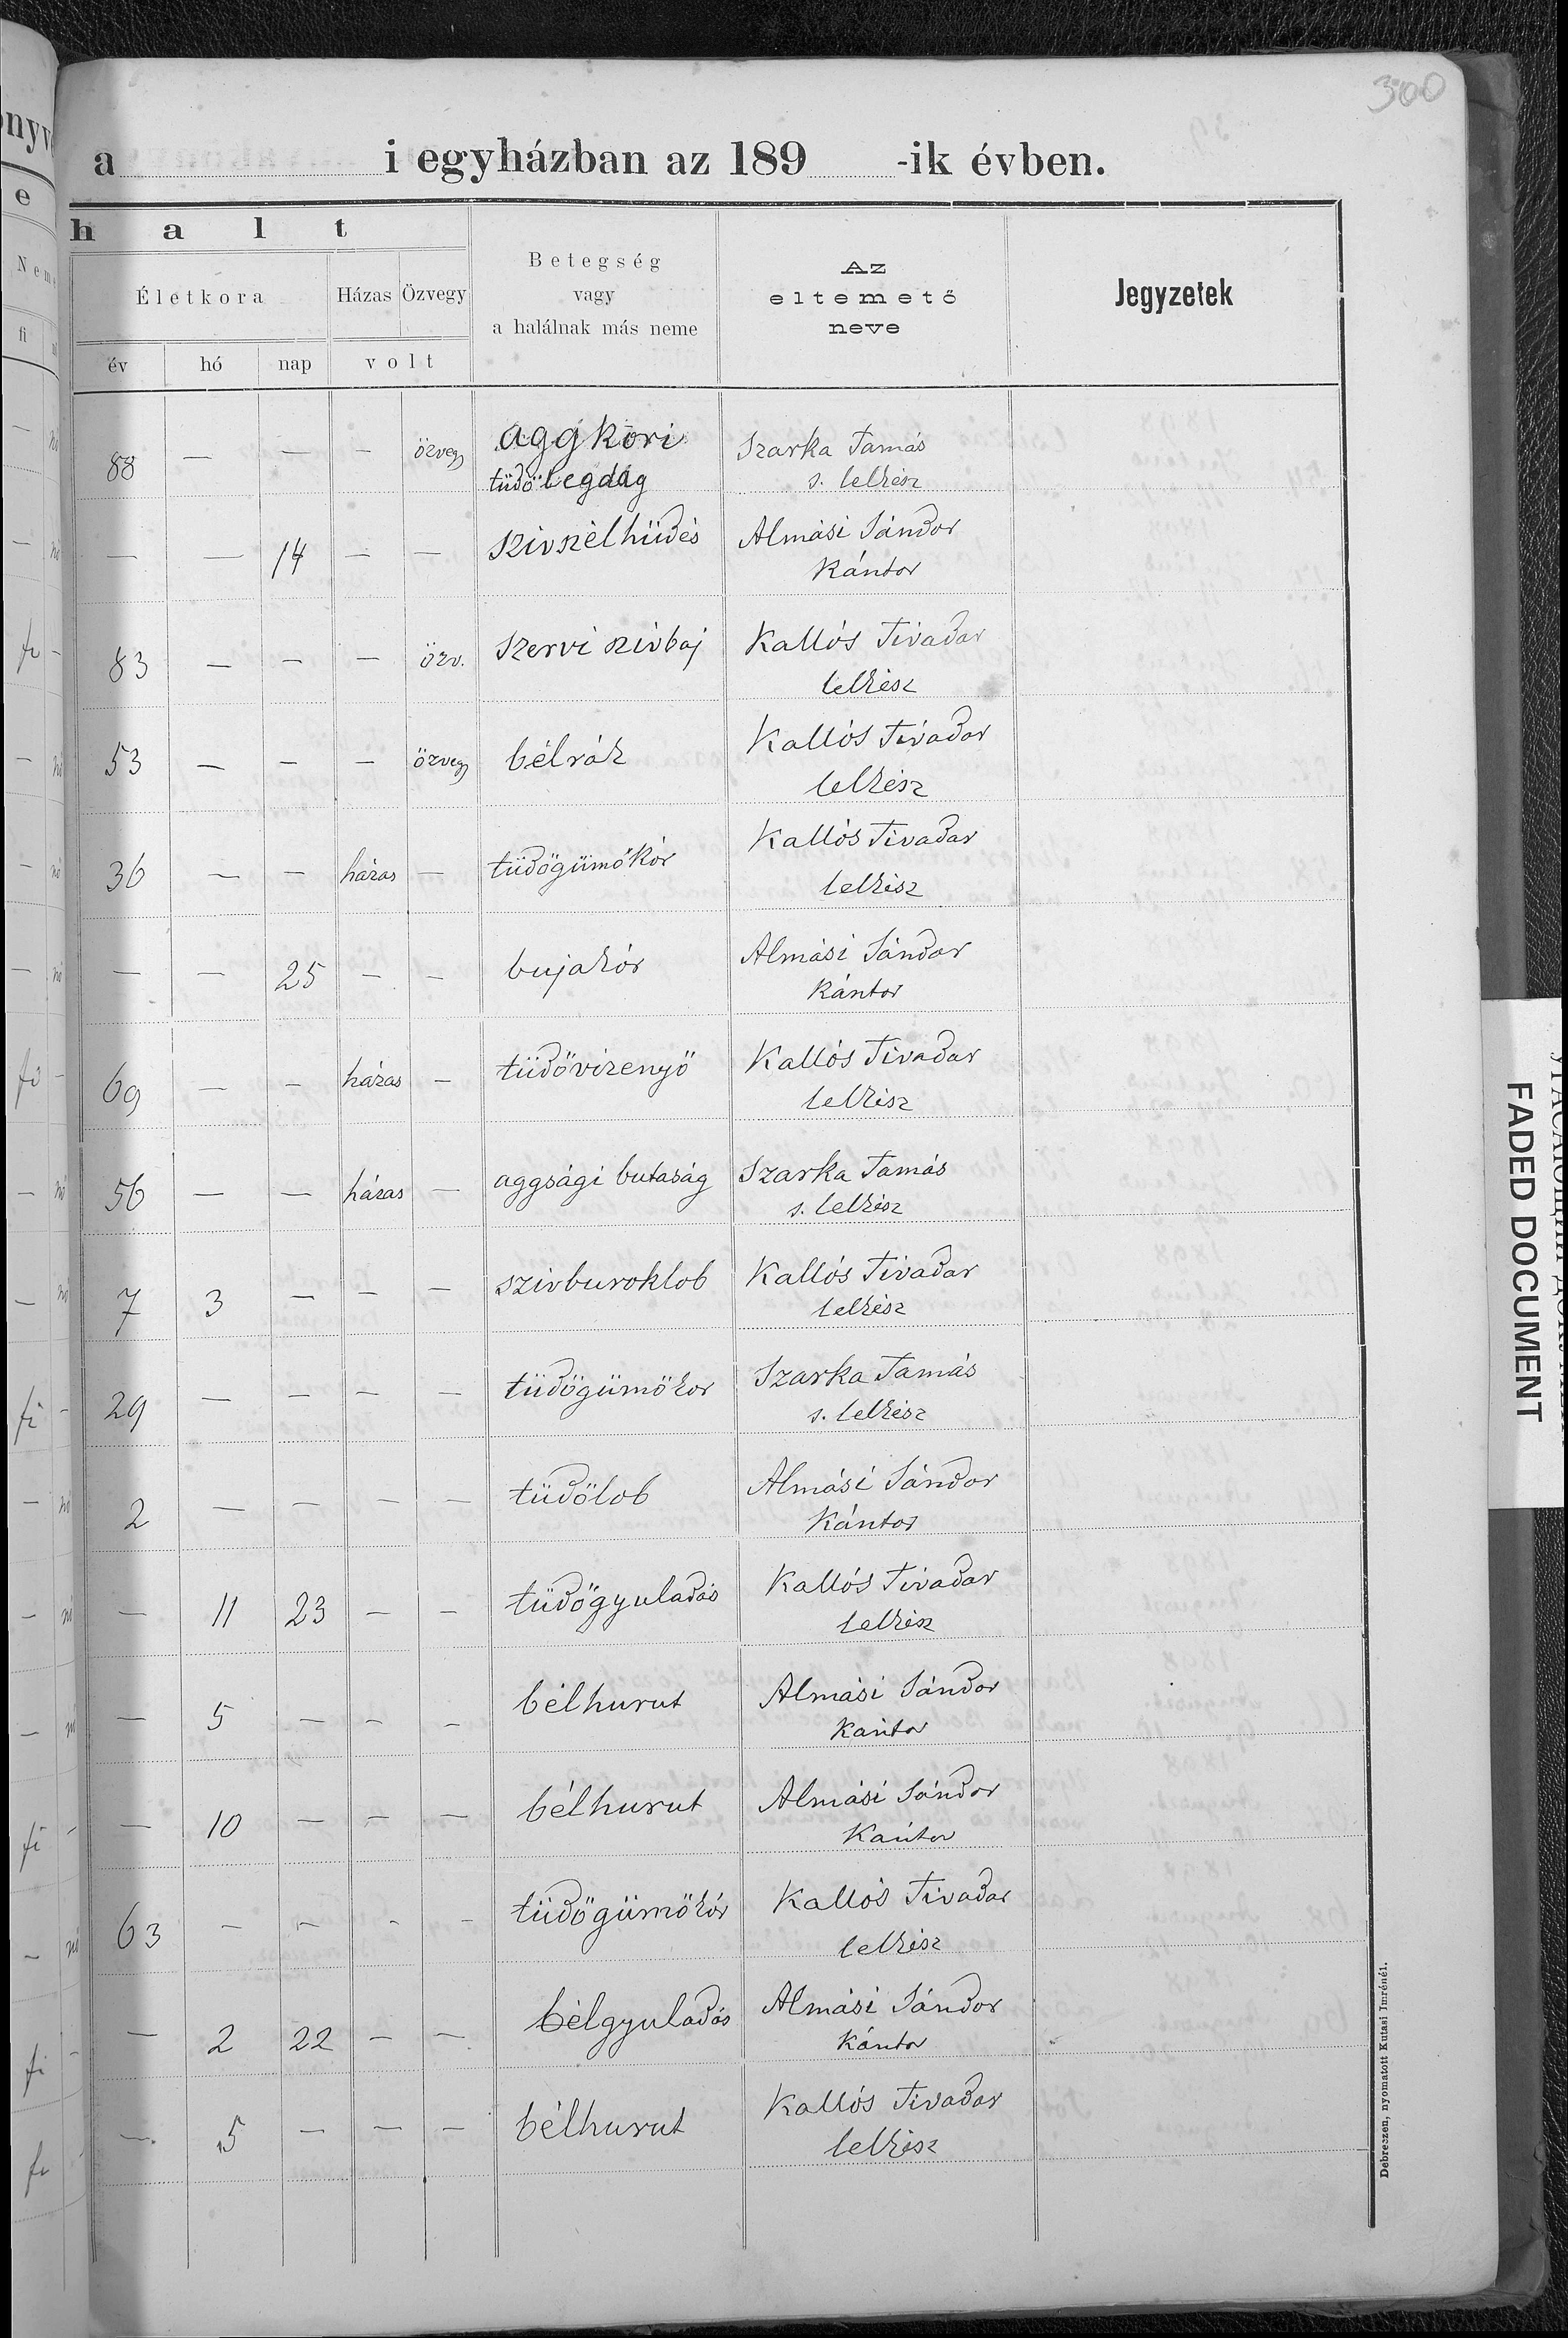 300
a i egyházban az 189 -ik évben.
h a l t
Életkora Házas Özvegy Betegség vagy a halálnak más neme Az eltemető neve Jegyzetek
év hó nap volt
88 — — — özvegy aggkori Szarka Tamás
tüdőlégdag s. lelkész
— — 14 — — szivszélhüdés Almási Sándor
Kántor
83 — — — özv. szervi szivbaj Kallós Tivadar
lelkész
53 — — — özvegy bélrák Kallós Tivadar
lelkész
36 — — házas — tüdőgümőkór Kallós Tivadar
lelkész
— — 25 — — bujakór Almási Sándor
Kántor
69 — — házas — tüdővizenyő Kallós Tivadar
lelkész
56 — — házas — aggsági butaság Szarka Tamás
s. lelkész
7 3 — — — szivburoklob Kallós Tivadar
lelkész
29 — — — — tüdőgümőkor Szarka Tamás
s. lelkész
2 — — — — tüdőlob Almási Sándor
Kántor
— 11 23 — — tüdőgyuladás Kallós Tivadar
lelkész
— 5 — — — bélhurut Almási Sándor
Kántor
— 10 — — — bélhurut Almási Sándor
Kántor
63 — — — — tüdőgümőkór Kallós Tivadar
lelkész
— 2 22 — — bélgyuladás Almási Sándor
Kántor
— 5 — — — bélhurut Kallós Tivadar
lelkész
Debreczen, nyomatott Kutasi Imrénél.
FADED DOCUMENT